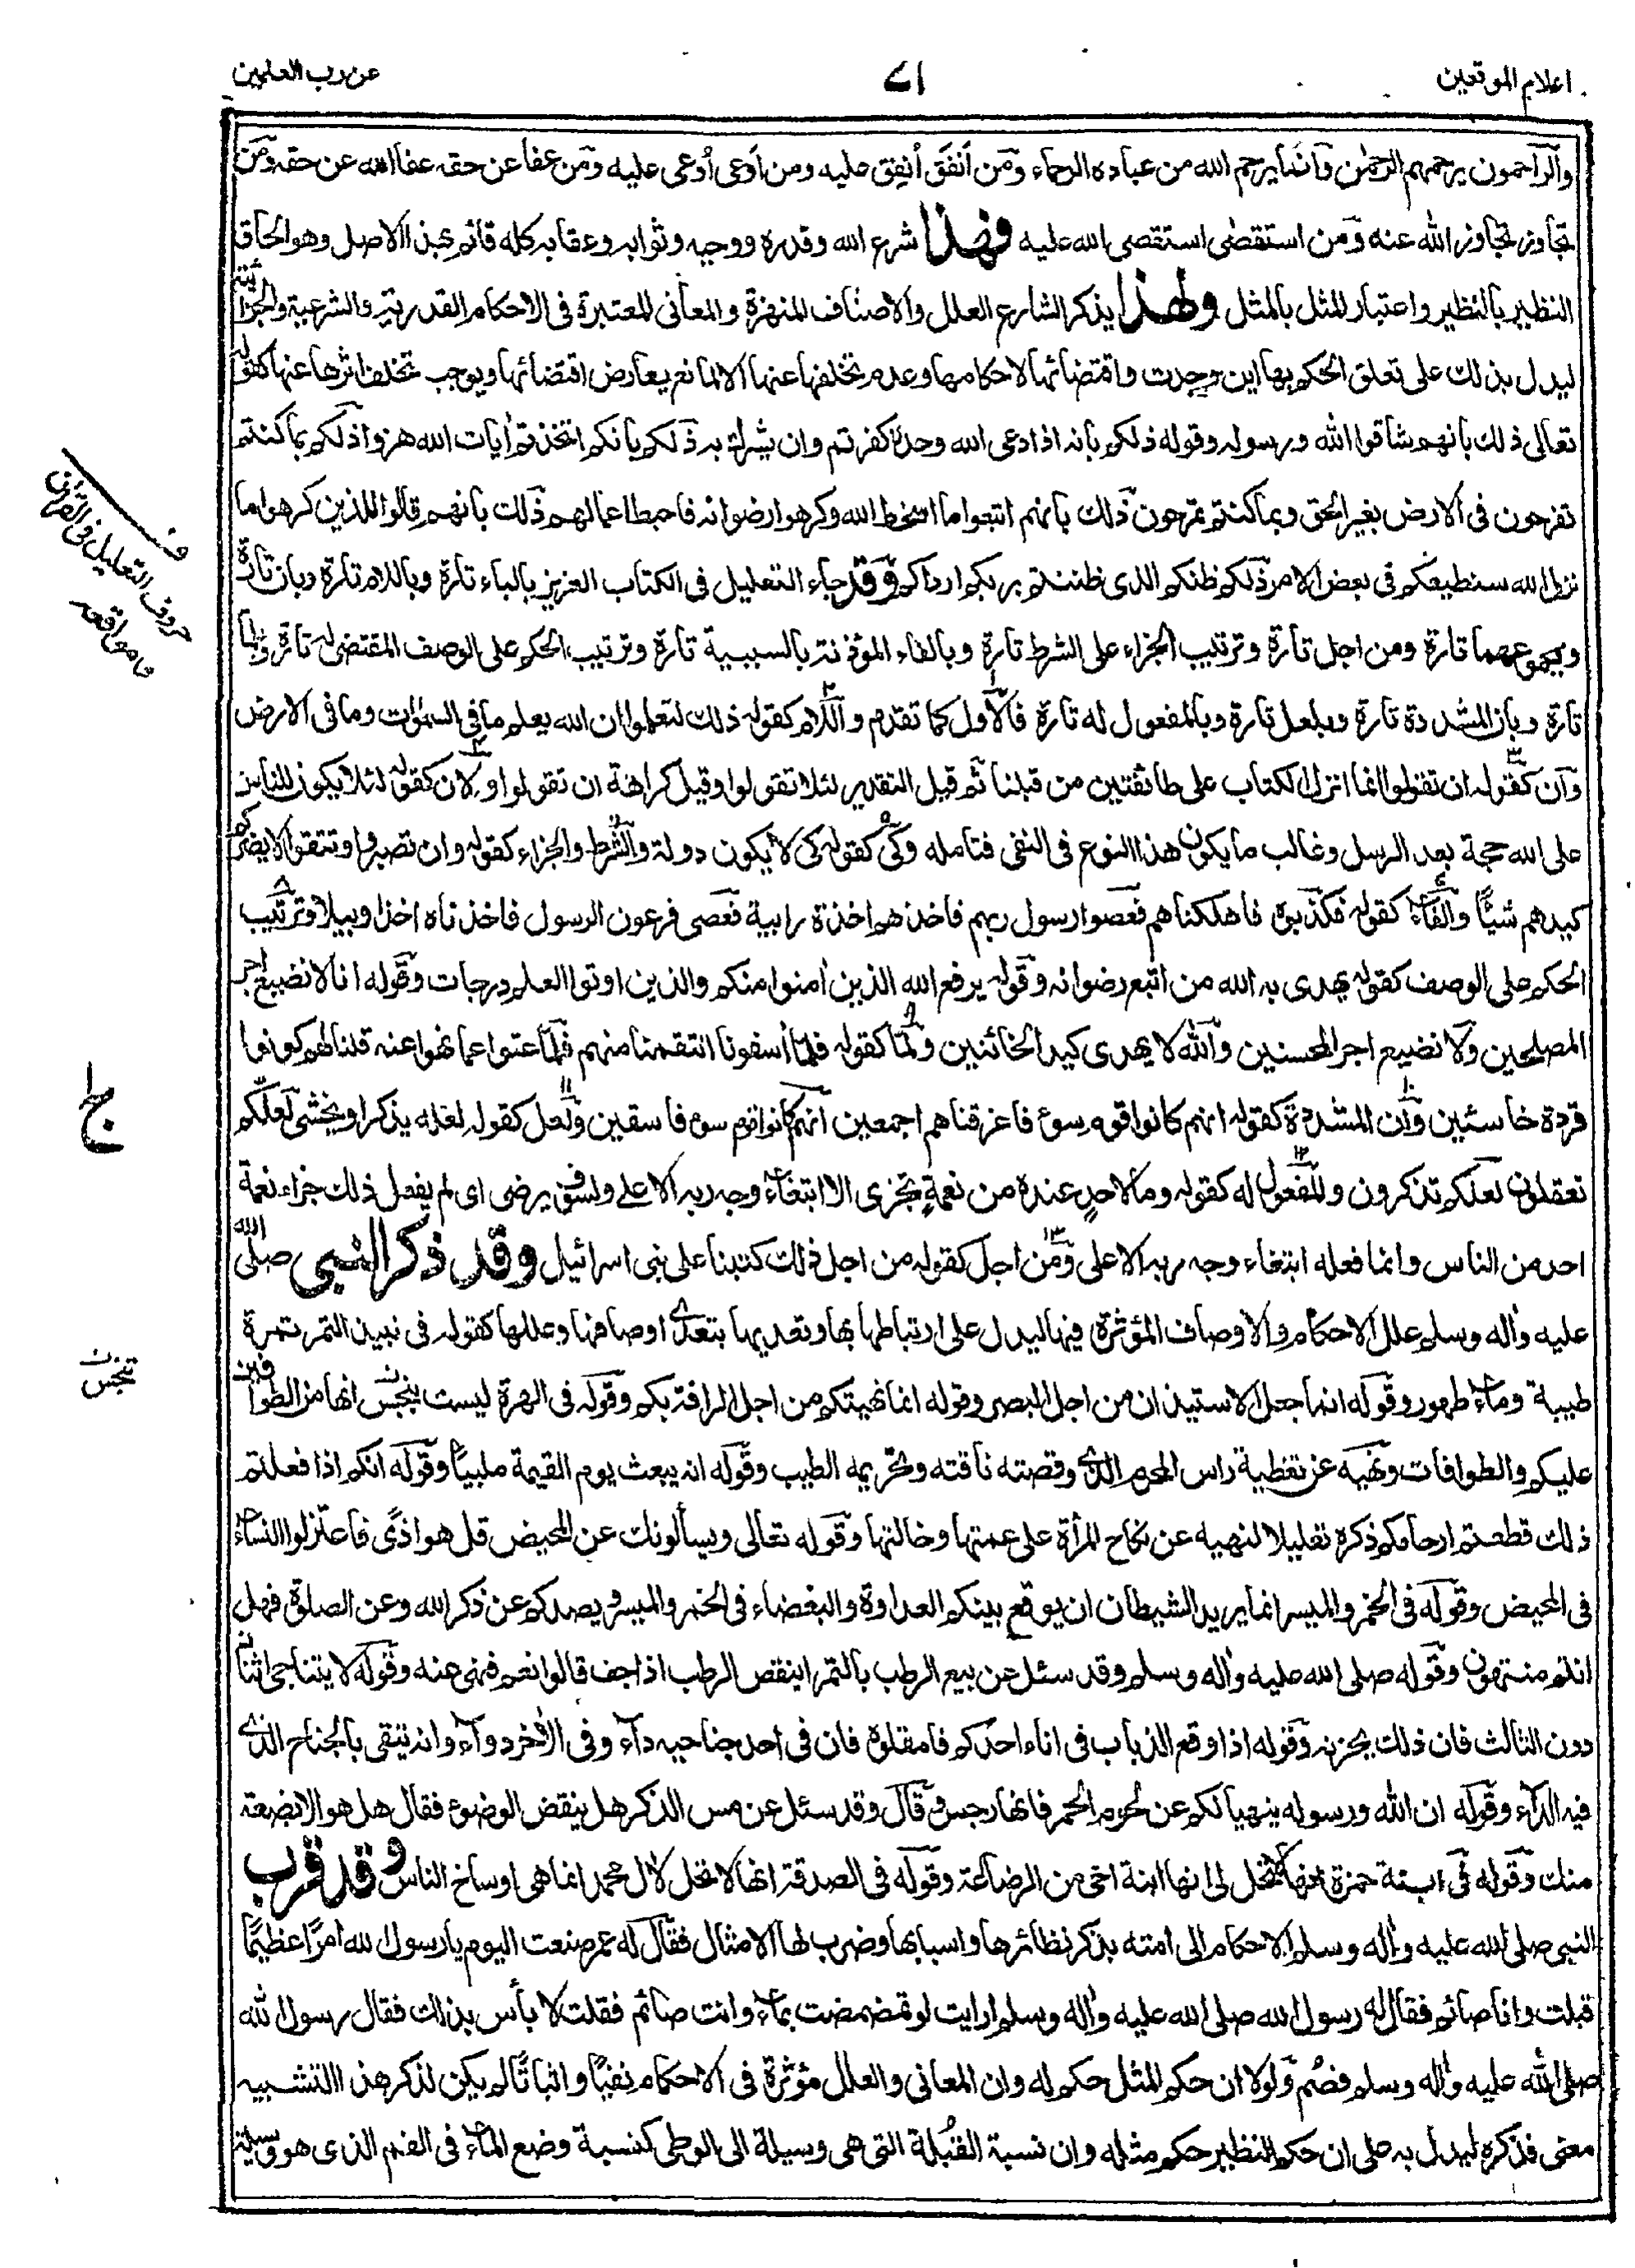 اعلام الموقعين
٧١
عن رب العلمين
والراحمون يرحمهم الرحمٰن وانما يرحم الله من عباده الرحماء ومن أنفق أنفق عليه ومن اوعى أوعى عليه ومن عفا عن حقه عفا الله عن حقه ومن
تجاوز تجاوز الله عنه ومن استقصى استقصى الله عليه فهذا شرع الله وقدره ووحيه وثوابه وعقابه كله قائم بهذا الاصل وهو الحاق
النظير بالنظير واعتبار المثل بالمثل ولهذا يذكر الشارع العلل والاوصاف المؤثرة والمعاني المعتبرة في الاحكام القدرية والشرعية والجزائية
ليدل بذلك على تعلق الحكم بها اين وجدت واقتضائها لاحكامها وعدم تخلفها عنها الا لمانع يعارض اقتضائها ويوجب تخلف اثرها عنها كقوله
تعالى ذلك بانهم شاقوا الله ورسوله وقوله ذلكم بانه اذا دعى الله وحده كفرتم وان يشرك به ذلكم بانكم اتخذتم اٰيات الله هزوا ذلكم بما كنتم
تفرحون في الارض بغير الحق وبما كنتم تمرحون ذلك بانهم اتبعوا ما اسخط الله وكرهوا رضوانه فاحبط اعمالهم ذلك بانهم قالوا للذين كرهوا ما
نزل الله سنطيعكم في بعض الامر ذلكم ظنكم الذى ظننتم بربكم ارداكم وقد جاء التعليل في الكتاب العزيز بالباء تارة وباللام تارة وبان تارة
وبمجموعهما تارة ومن اجل تارة وترتيب الجزاء على الشرط تارة وبالفاء المؤذنة بالسببية تارة وترتيب الحكم على الوصف المقتضى له تارة وبلما
تارة وبان المشددة تارة وبلعل تارة وبالمفعول له تارة فالاول كما تقدم واللام كقوله ذلك لتعلموا ان الله يعلم ما في السمٰوات وما في الارض
وان كقوله ان تقولوا انما انزل الكتاب على طائفتين من قبلنا ثم قيل التقدير لئلا تقولوا وقيل كراهة ان تقولوا ولان كقوله لئلا يكون للناس
على الله حجة بعد الرسل وغالب ما يكون هذا النوع في النفى فتامله وكى كقوله كى لا يكون دولة والشرط والجزاء كقوله وان تصبروا وتتقوا لا يضركم
كيدهم شيئًا والفاء كقوله فكذبوه فاهلكناهم فعصوا رسول ربهم فاخذهم اخذة رابية فعصى فرعون الرسول فاخذناه اخذا وبيلا وترتيب
الحكم على الوصف كقوله يهدى به الله من اتبع رضوانه وقوله يرفع الله الذين اٰمنوا منكم والذين اوتوا العلم درجات وقوله انا لا نضيع اجر
المصلحين ولا نضيع اجر المحسنين والله لا يهدى كيد الخائنين ولما كقوله فلما أسفونا انتقمنا منهم فلما عتوا عما نهوا عنه قلنا لهم كونوا
قردة خاسئين وان المشددة كقوله انهم كانوا قوم سوء فاغرقناهم اجمعين انهم كانوا قوم سوء فاسقين ولعل كقوله لعله يذكر او يخشى لعلكم
تعقلون لعلكم تذكرون وللمفعول له كقوله وما لاحدٍ عنده من نعمةٍ تجزى الا ابتغاء وجه ربه الاعلى ولسوف يرضى اى لم يفعل ذلك جزاء نعمة
احد من الناس وانما فعله ابتغاء وجه ربه الاعلى ومن اجل كقوله من اجل ذلك كتبنا على بنى اسرائيل وقد ذكر النبى صلى الله
عليه واٰله وسلم علل الاحكام والاوصاف المؤثرة فيها ليدل على ارتباطها بها وتعديها بتعدى اوصافها وعللها كقوله في نبيذ التمر تمرة
طيبة وماء طهور وقوله انما جعل الاستيذان من اجل البصر وقوله انما نهيتكم من اجل الرافة بكم وقوله في الهرة ليست بنجس انها من الطوافين
عليكم والطوافات ونهيه عن تغطية راس المحرم الذى وقصته ناقته وتحريمه الطيب وقوله انه يبعث يوم القيمة ملبيًا وقوله انكم اذا فعلتم
ذلك قطعتم ارحامكم ذكره تعليلا لنهيه عن نكاح المرأة على عمتها وخالتها وقوله تعالى ويسألونك عن المحيض قل هو اذًى فاعتزلوا النساء
في المحيض وقوله في الخمر والميسر انما يريد الشيطان ان يوقع بينكم العداوة والبغضاء في الخمر والميسر ويصدكم عن ذكر الله وعن الصلوة فهل
انتم منتهون وقوله صلى الله عليه واٰله وسلم وقد سئل عن بيع الرطب بالتمر اينقص الرطب اذا جف قالوا نعم فنهى عنه وقوله لا يتناجى اثنان
دون الثالث فان ذلك يحزنه وقوله اذا وقع الذباب في اناء احدكم فامقلوه فان في احد جناحيه داء وفي الاٰخر دواء وانه يتقى بالجناح الذى
فيه الداء وقوله ان الله ورسوله ينهيانكم عن لحوم الحمر فانها رجس وقال وقد سئل عن مس الذكر هل ينقض الوضوء فقال هل هو الا بضعة
منك وقوله في ابنة حمزة انها لا تحل لى انها ابنة اخى من الرضاعة وقوله في الصدقة انها لا تحل لاٰل محمد انما هى اوساخ الناس وقد قرب
النبى صلى الله عليه واٰله وسلم الاحكام الى امته بذكر نظائرها واسبابها وضرب لها الامثال فقال له عمر صنعت اليوم يا رسول الله امرًا عظيمًا
قبلت وانا صائم فقال له رسول الله صلى الله عليه واٰله وسلم ارايت لو تمضمضت بماء وانت صائم فقلت لا بأس بذلك فقال رسول الله
صلى الله عليه واٰله وسلم فصُم ولولا ان حكم المثل حكم له وان المعانى والعلل مؤثرة في الاحكام نفيًا واثباتًا لم يكن لذكر هذا التشبيه
معنى فذكره ليدل به على ان حكم النظير حكم مثله وان نسبة القُبلة التى هى وسيلة الى الوطى كنسبة وضع الماء في الفم الذى هو وسيلة
ف
حروف التعليل في القراٰن
ومواقعه
ج ا
تنجس ن